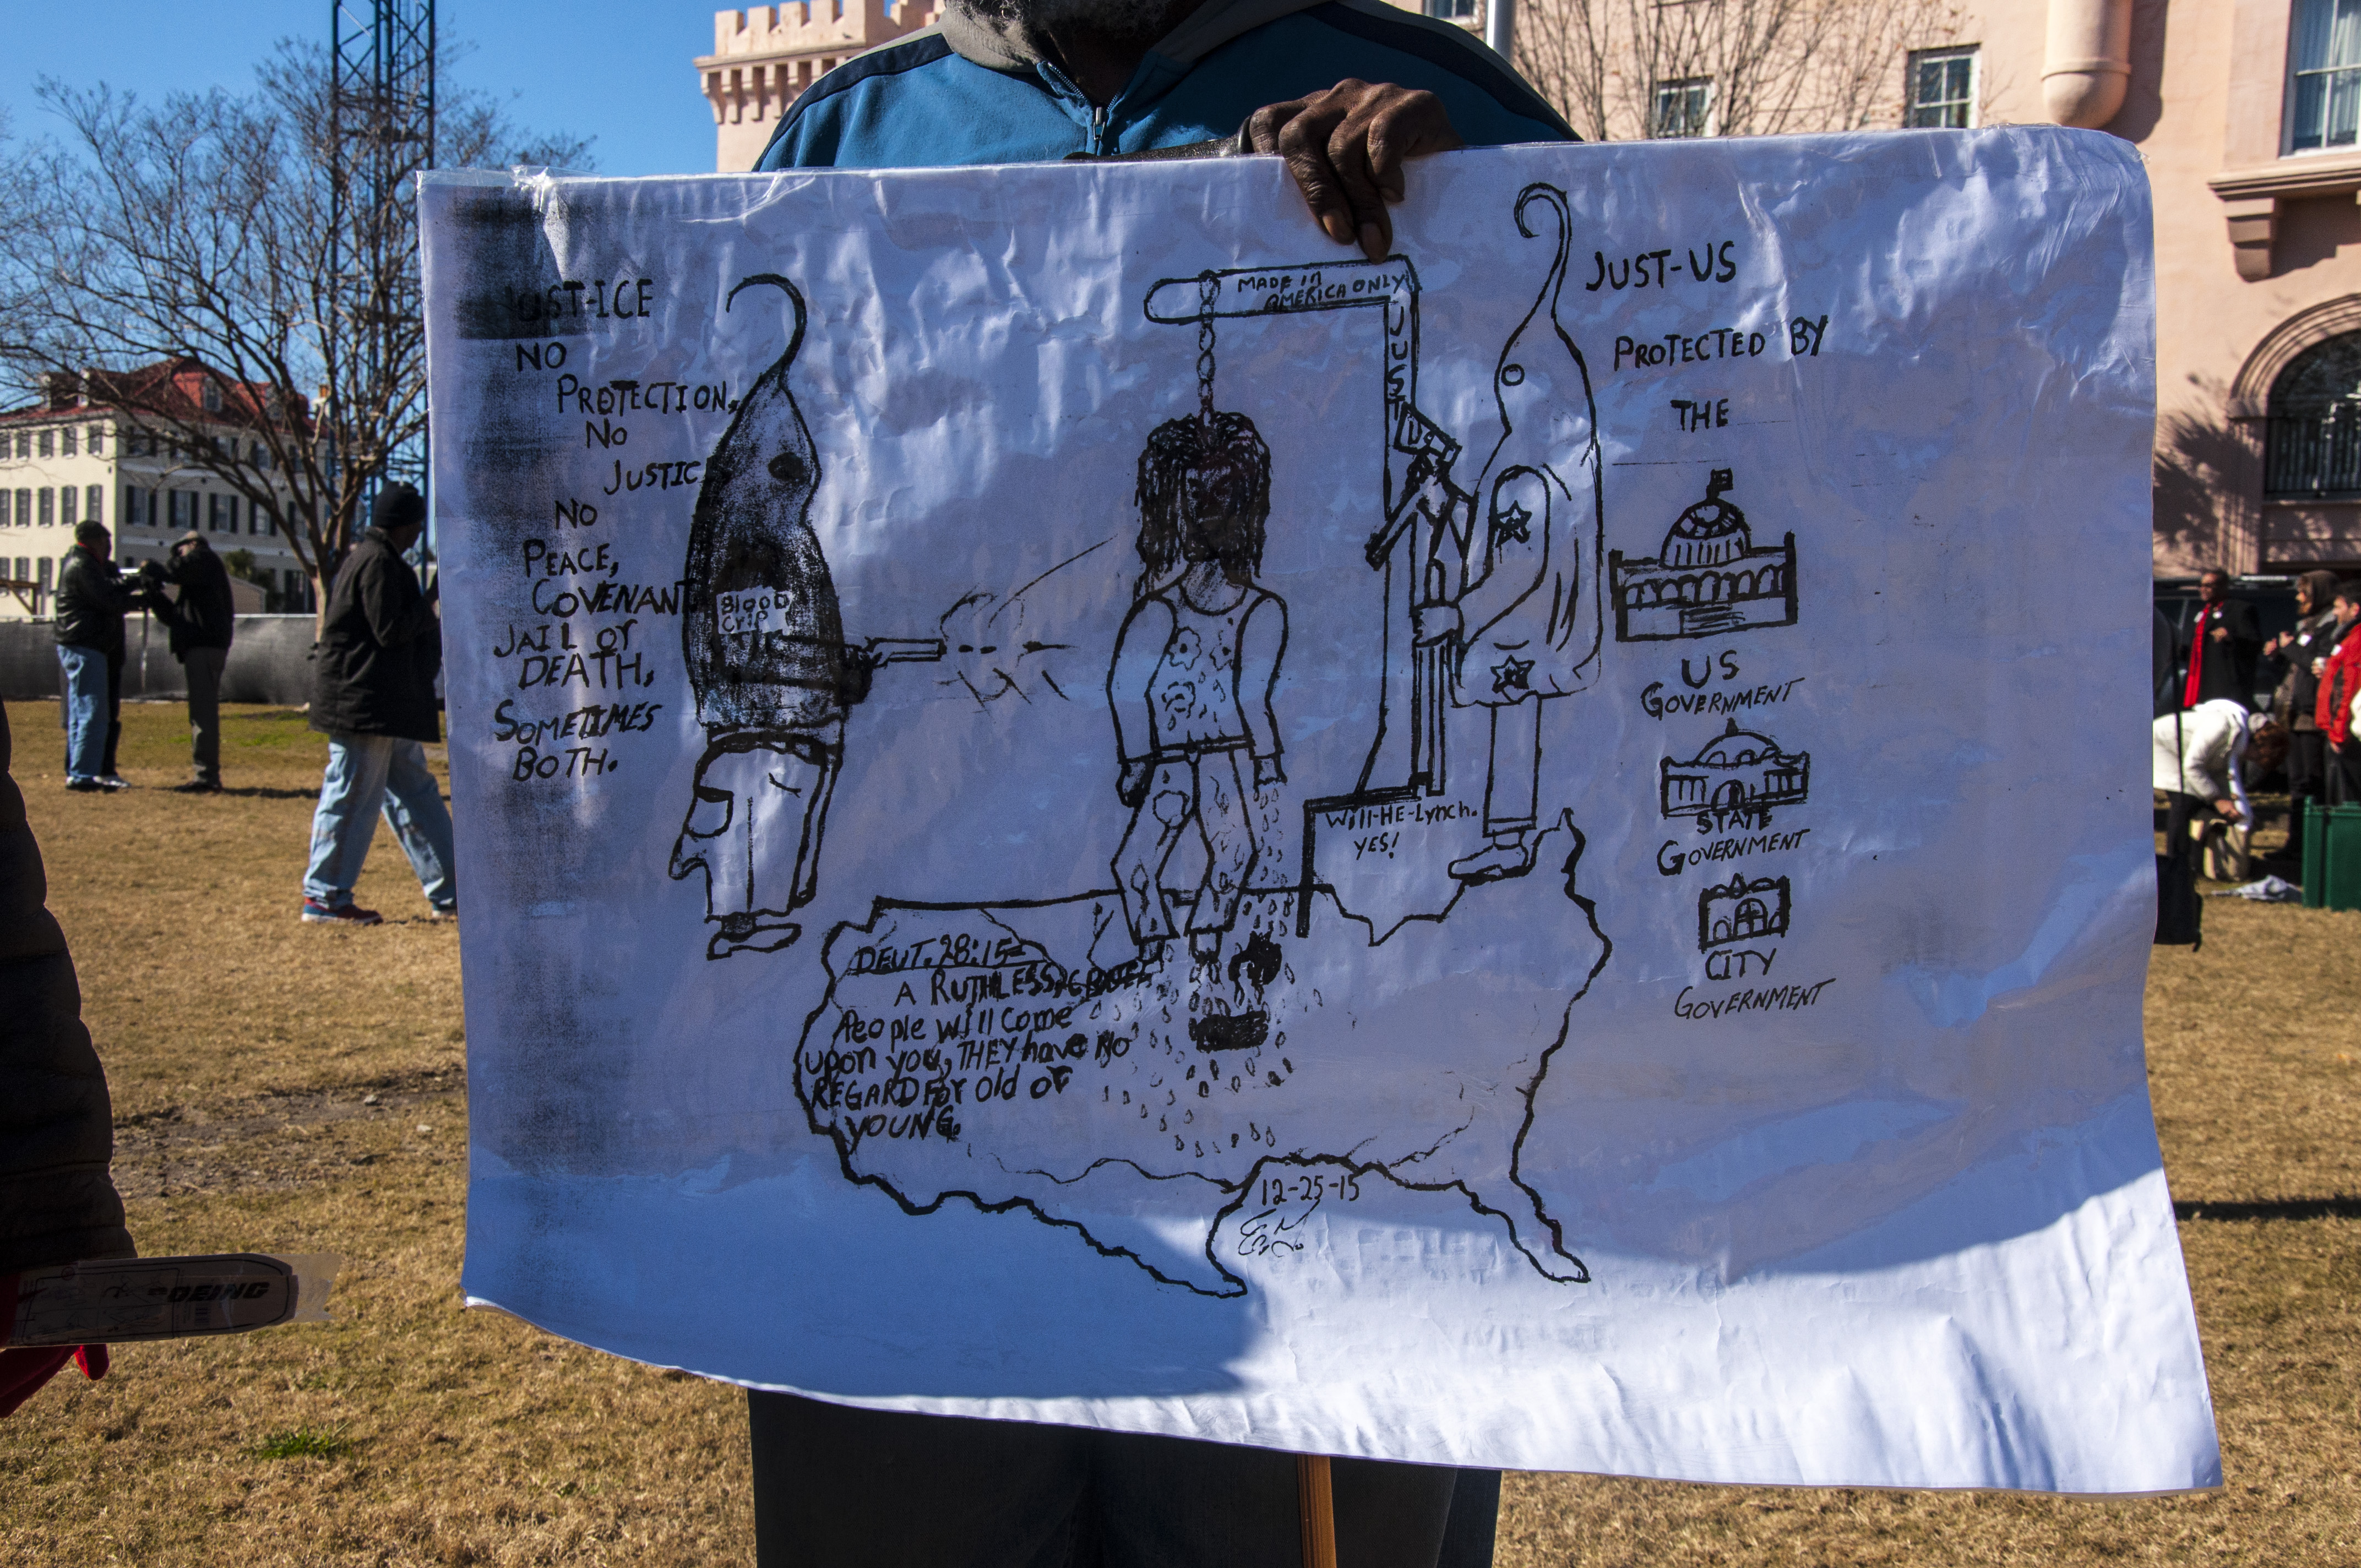 JUST-ICE
NO
PROTECTION,
NO
JUSTICE
NO
PEACE,
COVENANT
JAIL or
DEATH.
SOMETIMES
BOTH.
Blood
Crip
MADE in
AMERICA ONLY
JUST
U
Will-HE-Lynch.
YES!
JUST-US
PROTECTED BY
THE
US
GOVERNMENT
STATE
GOVERNMENT
CITY
GOVERNMENT
DEUT. 28:15-
A RUTHLESS,
People will come
upon you, THEY have NO
REGARD For old or
YOUNG.
12-25-15
BOEING